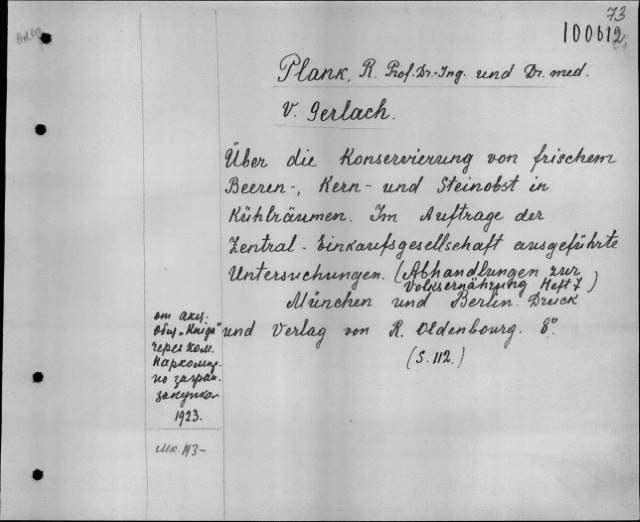 73
100612
Plank, R. Prof. Dr.-Ing. und Dr. med.
V. Gerlach.
Über die Konservierung von frischem
Beeren-, Kern- und Steinobst in
Kühlräumen. Im Auftrage der
Zentral-Einkaufsgesellschaft ausgeführte
Untersuchungen. (Abhandlungen zur
Volksernährung Heft 7)
München und Berlin. Druck
und Verlag von R. Oldenbourg. 8°.
(S. 112.)
от акц.
общ. „Книга"
через ком.
Наркомпр.
по загран.
закупкам
1923.
143-